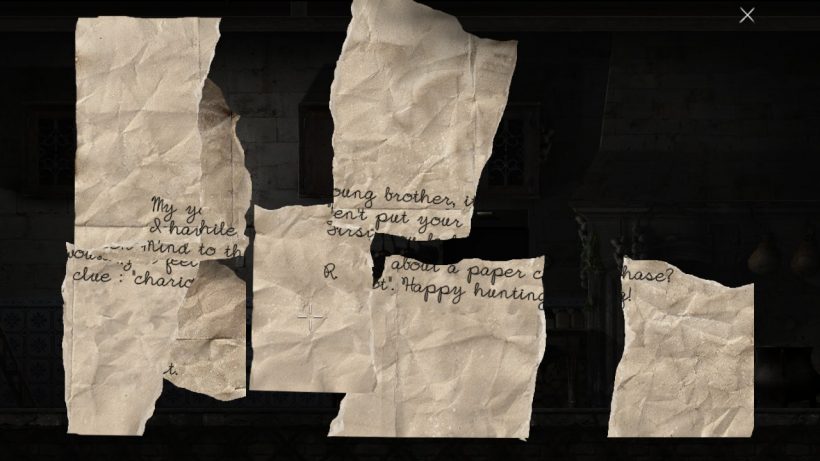 My y
oung brother, i
I ha
while
en't put your
mind to th
feel
about a paper c
hase?
clue : "chario
ot". Happy hunting
g!
R
t.